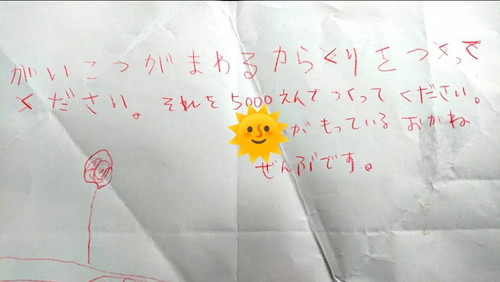 がいこつがまわるからくりをつくって
ください。それを5000えんでつくってください。
がもっているおかね
ぜんぶです。